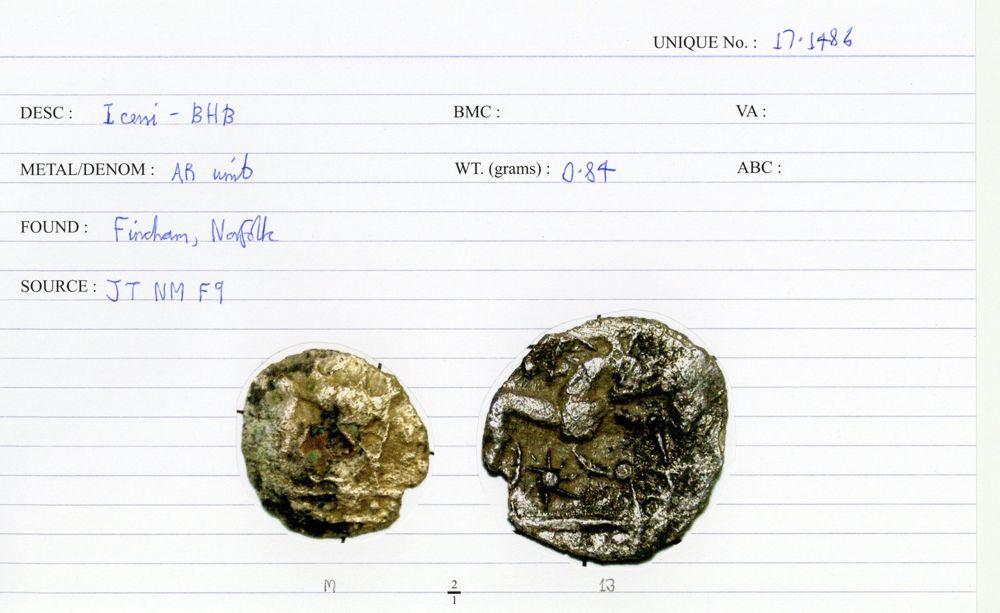 UNIQUE No. : 17.1486
DESC : Iceni - BHB BMC : VA :
METAL/DENOM : AR unit WT. (grams) : 0.84 ABC :
FOUND : Fincham, Norfolk
SOURCE : JT NM F9
M 2/1 13